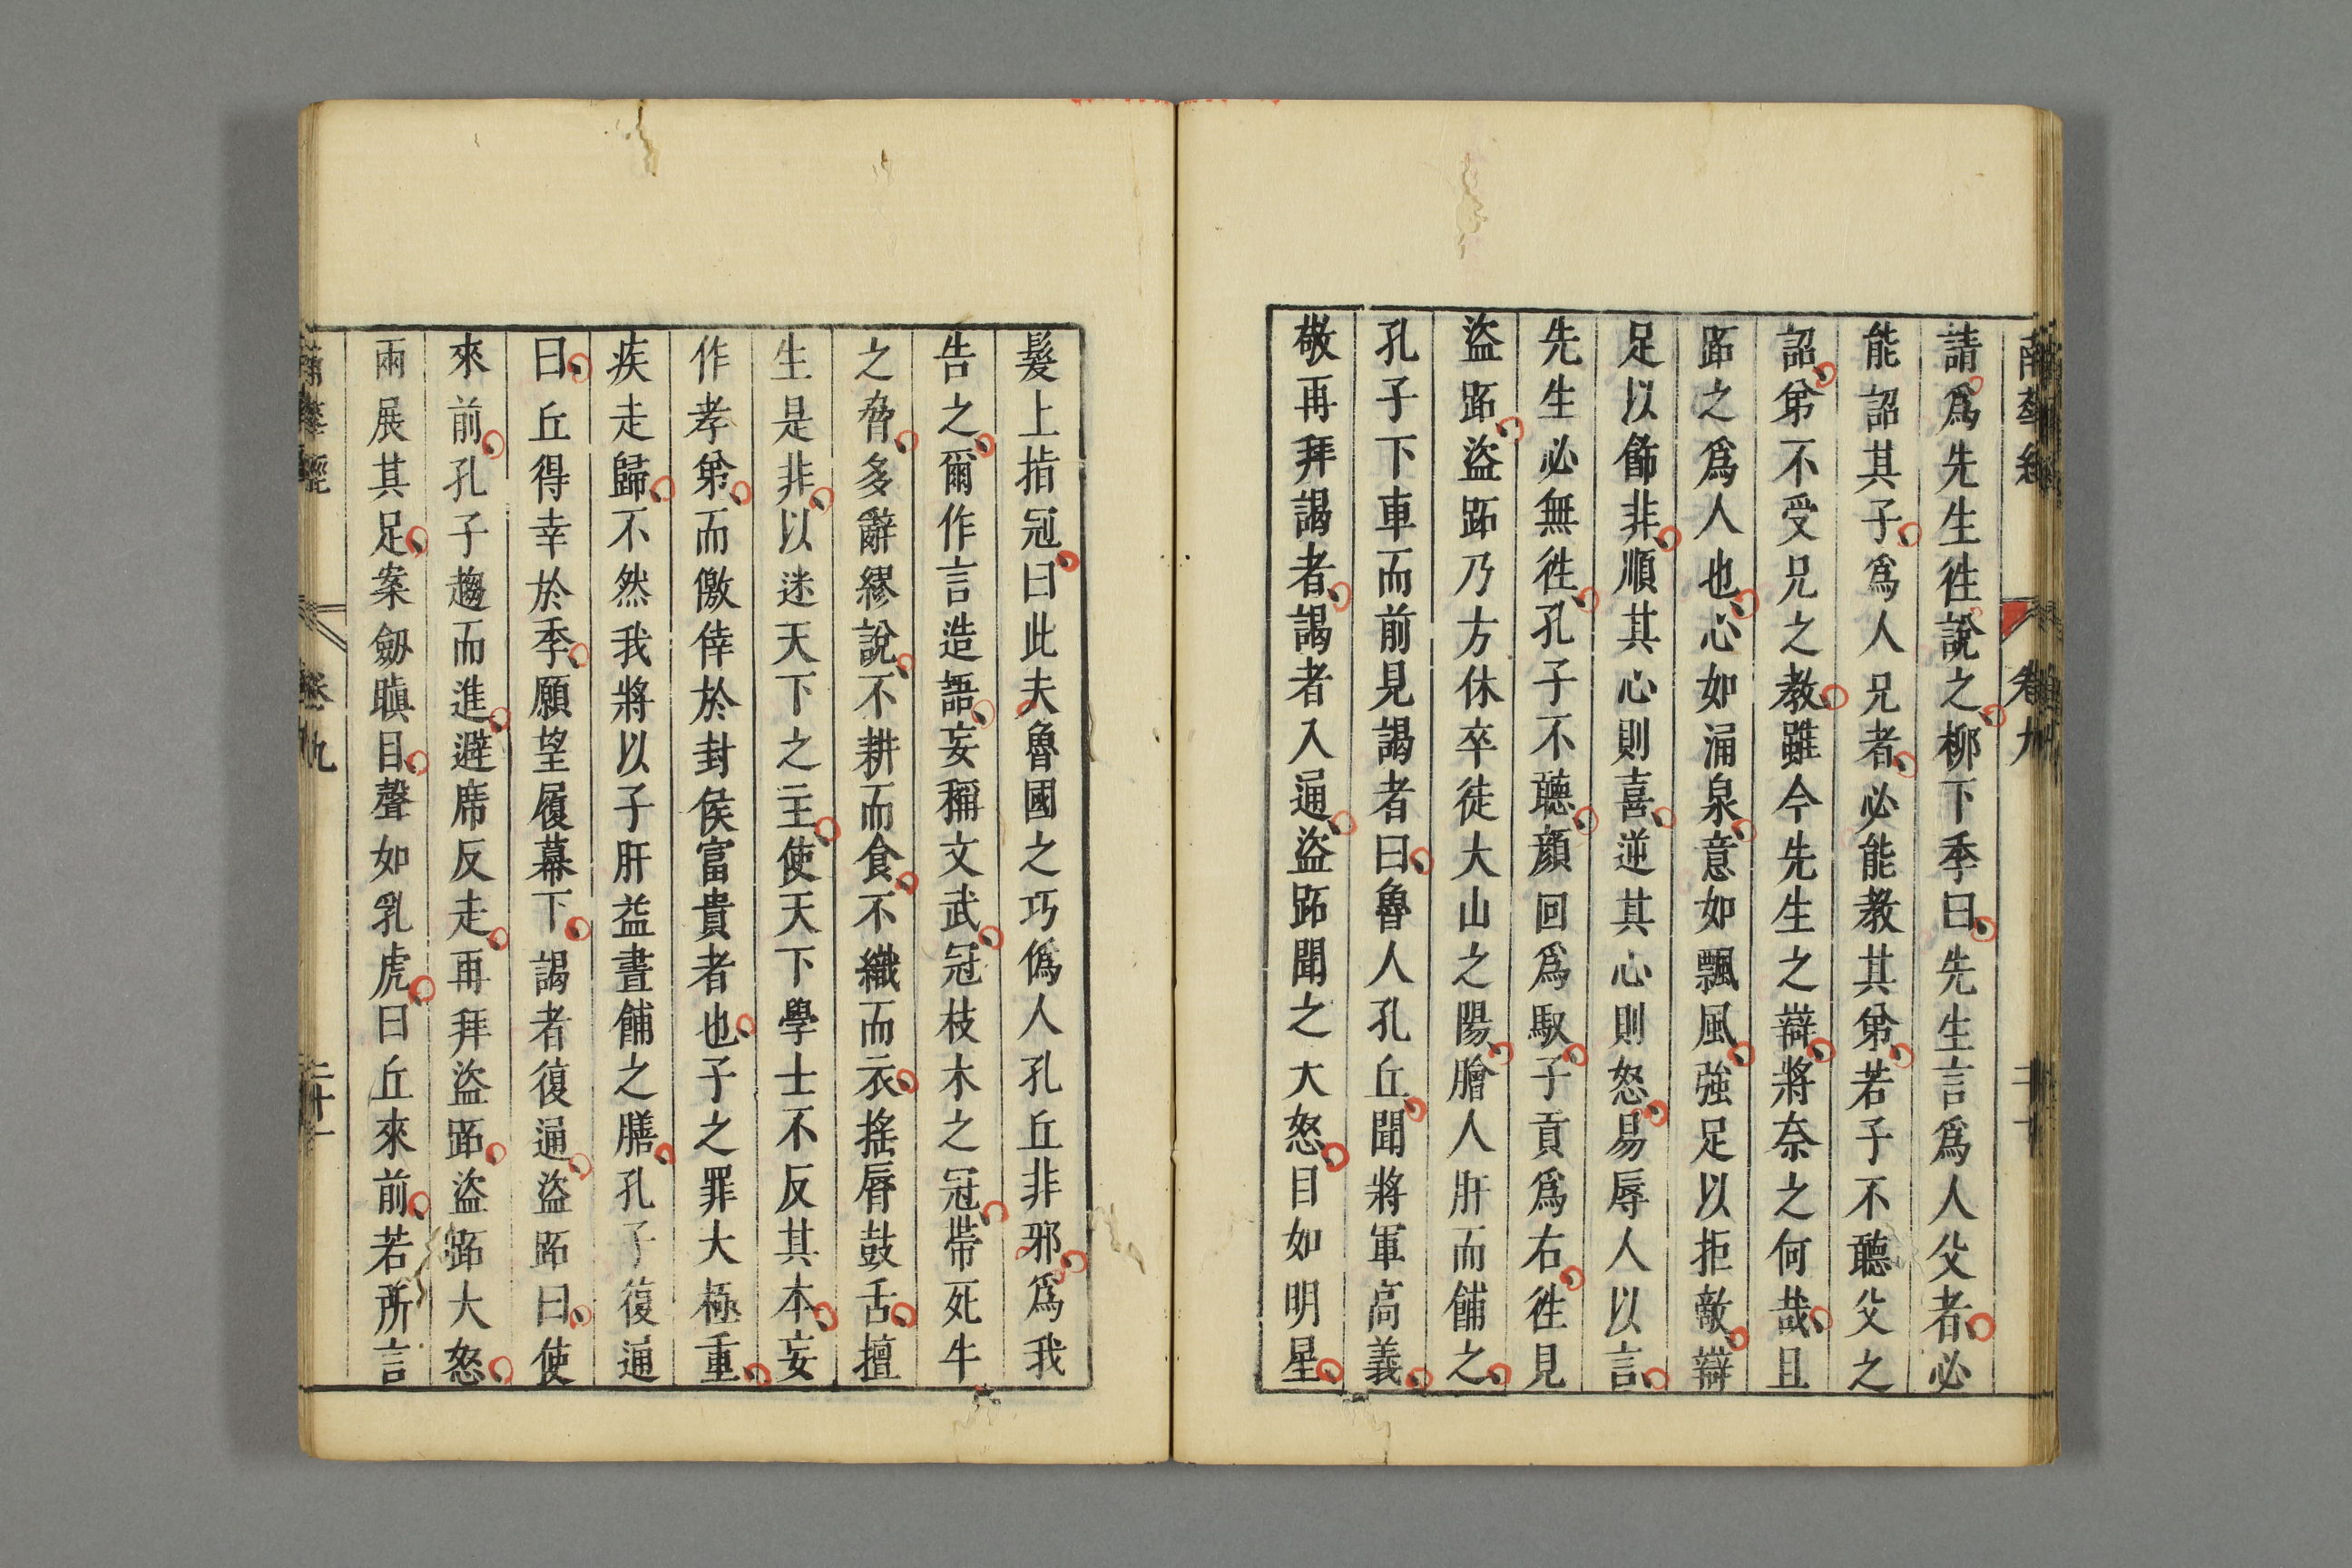 請爲先生徃說之柳下季曰先生言爲人父者必
能詔其子爲人兄者必能教其弟若子不聽父之
詔弟不受兄之教雖今先生之辯將奈之何哉且
跖之爲人也心如涌泉意如飄風強足以拒敵辯
足以飾非順其心則喜逆其心則怒易辱人以言
先生必無徃孔子不聽顔回爲馭子貢爲右徃見
盜跖盜跖乃方休卒徒大山之陽膾人肝而餔之
孔子下車而前見謁者曰魯人孔丘聞將軍高義
敬再拜謁者謁者入通盜跖聞之大怒目如明星
髮上指冠曰此夫魯國之巧僞人孔丘非邪爲我
告之爾作言造語妄稱文武冠枝木之冠帶死牛
之脅多辭繆說不耕而食不織而衣搖脣鼓舌擅
生是非以迷天下之主使天下學士不反其本妄
作孝弟而儌倖於封侯富貴者也子之罪大極重
疾走歸不然我將以子肝益晝餔之膳孔子復通
曰丘得幸於季願望履幕下謁者復通盜跖曰使
來前孔子趨而進避席反走再拜盜跖盜跖大怒
兩展其足案劒瞋目聲如乳虎曰丘來前若所言
南華經 卷九